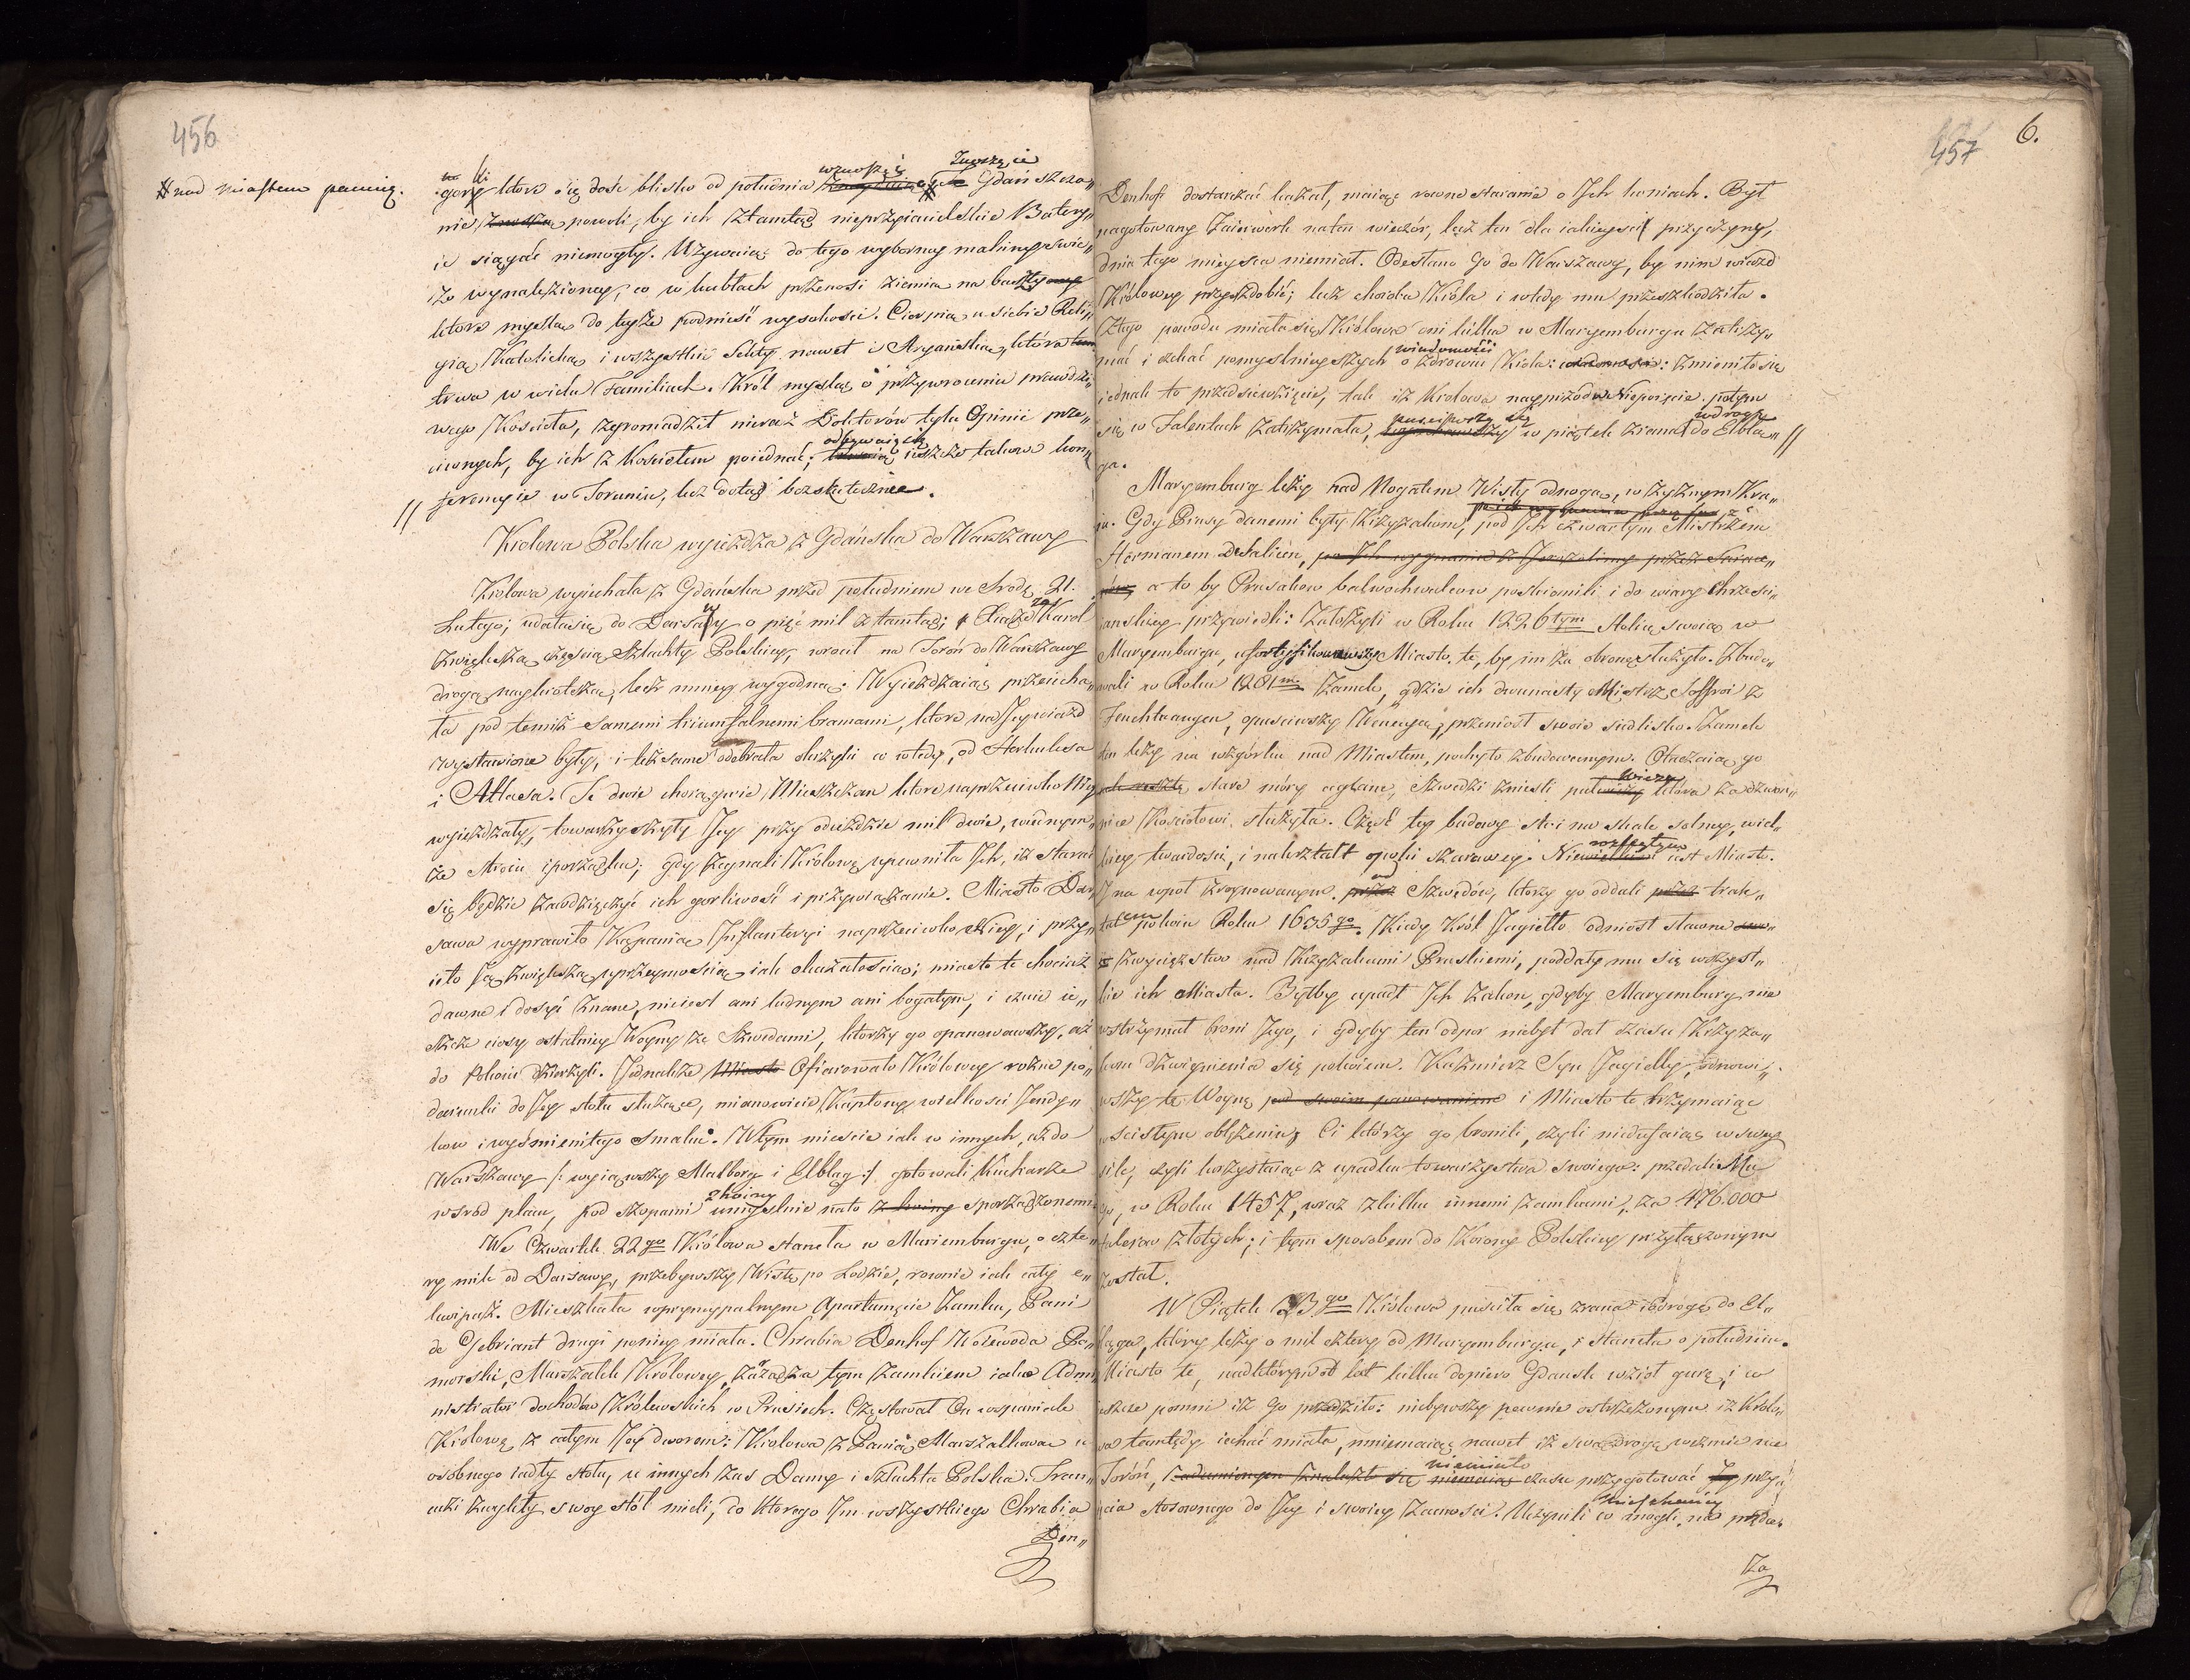 456
# nad miastem panuią.
górki które się dość blisko od południa wznoszą # Zwożą ie Gdańszcza„
nie, powoli, by ich ztamtąd nieprzyiacielskie Batery„
ie siągać niemogły. Używaią do tego wyborney mahiny świe„
żo wynalezioney, co w kubłach przenosi ziemię na baszty
które myslą do teyże podnieść wysokości. Cierpią u siebie Reli„
gią Katolicką i wszystkie Sekty nawet i Aryańską, która
trwa w wielu Familiach. Król myśląc o przywroceniu prawdzi„
wego Kościoła, zgromadził nieraz Doktorów tylu Opinii prze„
ciwnych, by ich z Kosciołem poiednać; odbywaią się ieszcze takowe kon„
// ferencyie w Toruniu, lecz dotąd bezskutecznie.
Krolowa Polska wyieżdża z Gdańska do Warszawy
Królowa wyiechała z Gdańska przed południem we Srodę 21.
Lutego; udała się do Darsawy o pięć mil ztamtąd; Xiąże zaś Karol
zwiększą częscią Szlachty Polskiey, wrocił na Toroń do Warszawy
drogą naykrotszą, lecz mniey wygodną. Wyieżdzaiąc przeiecha„
ła pod temiż samemi triumfalnemi bramami, które na Jey wiazd
wystawione były, i też same odebrała okrzyki co wtedy, od Herkulesa
i Atlasa. Te dwie chorągwie Mieszczan które naprzeciwko Niey
wyieżdzały, towarzyszyły Jey przy odiezdzie mil dwie, wiednym„
że stroiu i porządku; gdy żegnali Królowę upewniła Ich, iż starać
się będzie zawdzięczyć ich gorliwość i przywiązanie. Miasto Dar„
sawa wyprawiło Kąpanią Inflanteryi naprzeciwko Niey, i przy„
ięło Ją zwiększą uprzeymością iak okazałością; miasto te chociaż
dawne i dosyć znane, nieiest ani ludnym ani bogatym, i czuie ie„
szcze ciosy ostatniey Woyny ze Szwedami, którzy go opanowawszy, aż
do Pokoiu dzierżyli. Jednakże Miasto Ofiarowało Królowey rożne po„
darunki do Jey stołu służące, mianowicie Kapłony wielkości Jendy„
kow i wyśmienitego smaku. W tym mieście iak w innych, aż do
Warszawy /: wyiąwszy Malborg i Elbląg :/ gotowali Kucharze
wsród placu, pod szopami umyślnie nato z hoiny sporządzonemi
We Czwartek 22go Królowa stanęła w Mariemburgu, o czte„
ry mile od Darsawy, przebywszy Wisłę po Lodzie, rownie iak cały e„
kwipaż. Mieszkała wpryncypalnym Apartamęcie Zamku, Pani
de Gebriant drugi poniey miała. Chrabia Denhof Woiewoda Po„
morski, Marszałek Królowey, zarządza tym zamkiem iako Admi„
nistrator dochodów Królewskich w Prusiech. Częstował On wspaniale
Krolowę z całym Jey dworem: Krolowa z Panią Marszałkową u
osobnego iadły stołu, u innych zas Damy i Szlachta Polska. Fran„
cuzi zwykły swoy stół mieli, do którego Im wszystkiego Chrabia
Den„
457
6.
Denhof dostarczać kazał, maiąc rowne staranie o Ich koniach. Był
nagotowany Faierwerk naten wieczór, lecz ten dla iakieysci przyczyny,
dnia tego mieysca niemiał. Odesłano go do Warszawy, by nim wiazd
Królowey przyozdobić; lecz choroba Króla i wtedy mu przeszkodziła.
Ztego powodu miała się Królowa dni kilka w Maryemburgu zatrzy„
mać i czekać pomyslnieyszych wiadomości o zdrowiu Króla: zmieniło się
iednak to przedsiewzięcie, tak iż Krolowa nayprzód w Nieporęcie potym
się w Falentach zatrzymała, pusciwszy się w piątek zrana w drogę do Elblą„ //
ga.
Maryemburg leży nad Nogatem Wisły odnogą, w żyznym Kra„
iu. Gdy Prusy danemi były Krzyżakom, pod Ich czwartym Mistrzem
Hermanem DeSalicen, po Ich wygnaniu z Jerozolimy przez Sarace„
nów, a to by Prusakow bałwochwalcow poskromili i do wiary chrześci„
ianskiey przywiedli: Założyli w Roku 1226tym stolicę swoią w
Maryemburgu, ufortyfikowawszy Miasto te, by im za obronę służyło. Zbudo„
wali w Roku 1281m Zamek, gdzie ich dwunasty Mistrz Joffroi z
Feuchtwangen, opusciwszy Wenecyą, przeniosł swoie siedlisko. Zamek
ten leży na wzgórku nad Miastem, pochyło zbudowanym. Otaczaią go
stare móry ceglane, Szwedzi zniesli wieżę która za dzwon„
nice Kościołowi służyła. Część tey budowy stoi na skale solney, wiel„
kiey twardości, i nakształt opoki szarawey. Nierozległym iest Miasto.
I na wpoł zruynowanym od Szwedów, którzy go oddali trak„
tatem pokoiu Roku 1635go. Kiedy Król Jagiełło odniosł sławne
zwycięstwo nad Krzyżakami Pruskiemi, poddały mu się wszyst„
kie ich Miasta. Byłby upadł Ich Zakon, gdyby Maryemburg nie
wstrzymał broni Jego, i gdyby ten odpor niebył dał czasu Krzyża„
kom dzwignienia się pokoiem. Kazmierz Syn Jagiełły, odnowi„
wszy te Woynę pod swoim panowaniem i Miasto te trzymaiąc
wscisłym oblężeniu; Ci którzy go bronili, czyli niedufaiąc w swey
sile, czyli korzystaiąc z upadku towarzystwa swoiego: przedali Mu
go, w Roku 1457, wraz zkilku innemi zamkami, za 476.000
talerow złotych; i tym sposobem do Korony Polskiey przyłączonym
został.
W Piątek 23go Królowa puściła się zrana w drogę do El„
bląga, który leży o mil cztery od Maryemburga, i stanęła o południu.
Miasto te, nad którym od lat kilku dopiero Gdansk wziął gurę, i w
ieszcze pomni iż go przedziło: niebywszy pewnie ostrzeżonym iż Krolo„
wa tamtędy iechać miała, mniemaiąc nawet iż swą drogę weźmie na
Toróń, niemiało czasu przygotować przyię„
cia stosownego do Jey i swoiey zacności. Uczynili co mogli
Za